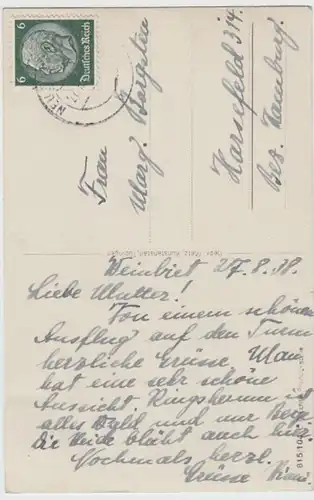 6 Deutsches Reich 6
Frau
Marg. Borgsten
Harsefeld 314.
Bez. Hamburg.
Weinbiet 27.8.38.
Liebe Mutter!
Von einem schönen
Ausflug auf den Turm
herzliche Grüsse. Man
hat eine sehr schöne
Aussicht. Ringsherum ist
alles Wald und nur Berge
die Heide blüht auch hier.
Nochmals herzl.
Grüsse